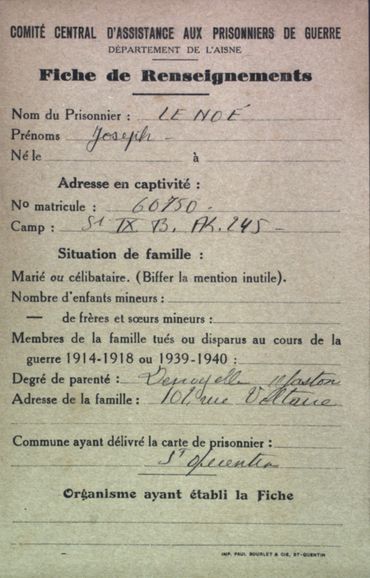 COMITÉ CENTRAL D'ASSISTANCE AUX PRISONNIERS DE GUERRE
DÉPARTEMENT DE L'AISNE
Fiche de Renseignements
Nom du Prisonnier : LE NOÉ
Prénoms Joseph -
Né le à
Adresse en captivité :
No matricule : 60750 -
Camp : St IX B. AK. 245 -
Situation de famille :
Marié ou célibataire. (Biffer la mention inutile).
Nombre d'enfants mineurs :
— de frères et sœurs mineurs :
Membres de la famille tués ou disparus au cours de la
guerre 1914-1918 ou 1939-1940 :
Degré de parenté :
Adresse de la famille : 101, rue Voltaire
Commune ayant délivré la carte de prisonnier :
St Quentin
Organisme ayant établi la Fiche
IMP. PAUL BOURLET & CIE, ST-QUENTIN